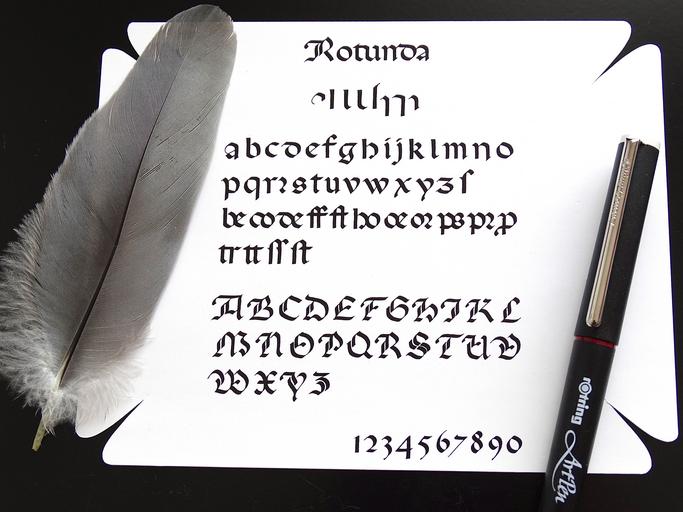 Rotunda
abcdefghijklmno
pqrꝛstuvwxyzſ
tr tt ſſ ſt
ABCDEFGHIJKL
MNOPQRSTUV
WXYZ
1234567890
rotring
ArtPen